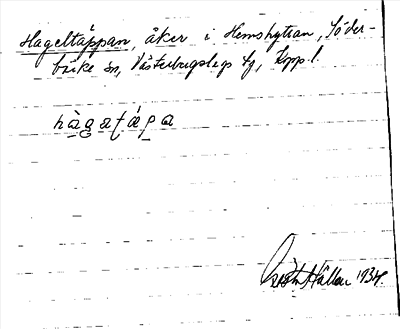 Hageltäppan, åker i Hemshyttan, Söder-
bärke sn, Västerbergslags fg, Kopp. l.
hàgatápa
Hållen 1934.